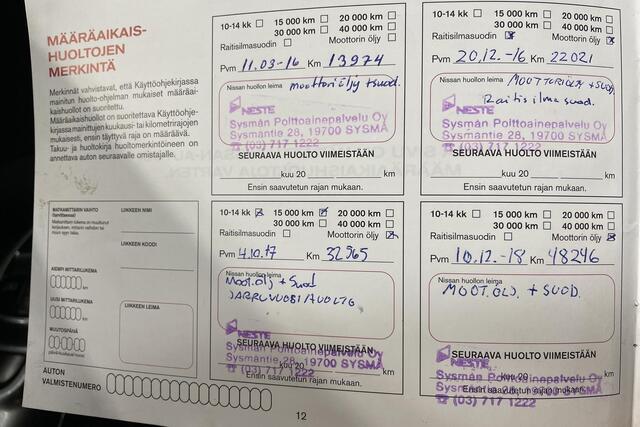 MÄÄRÄAIKAIS-
HUOLTOJEN
MERKINTÄ
Merkinnät vahvistavat, että Käyttöohjekirjassa
mainitun huolto-ohjelman mukaiset määräai-
kaishuollot on suoritettu.
Määräaikaishuollot on suoritettava Käyttöohje-
kirjassa mainittujen kuukausi- tai kilometrirajojen
mukaisesti, ensin täyttyvä raja on määräävä.
Takuu- ja huoltokirja huoltomerkintöineen on
annettava auton seuraavalle omistajalle.
10-14 kk 15 000 km 20 000 km
30 000 km 40 000 km
Raitisilmasuodin Moottorin öljy
Pvm 11.03-16 Km 13974
Nissan huollon leima moottoriöljy + suod.
NESTE
Sysmän Polttoainepalvelu Oy
Sysmäntie 28, 19700 SYSMÄ
(03) 717 1222
SEURAAVA HUOLTO VIIMEISTÄÄN
kuu 20 km
Ensin saavutetun rajan mukaan.
10-14 kk 15 000 km 20 000 km
30 000 km 40 000 km
Raitisilmasuodin Moottorin öljy
Pvm 20.12.-16 Km 22021
Nissan huollon leima MOOTTORIÖLJY + SUOD.
Raitis ilma suod.
NESTE
Sysmän Polttoainepalvelu Oy
Sysmäntie 28, 19700 SYSMÄ
(03) 717 1222
SEURAAVA HUOLTO VIIMEISTÄÄN
kuu 20 km
Ensin saavutetun rajan mukaan.
MATKAMITTARIN VAIHTO
(tarvittaessa)
LIIKKEEN NIMI
LIIKKEEN KOODI
AIEMPI MITTARILUKEMA
UUSI MITTARILUKEMA
MUUTOSPÄIVÄ
LIIKKEEN LEIMA
10-14 kk 15 000 km 20 000 km
30 000 km 40 000 km
Raitisilmasuodin Moottorin öljy
Pvm 4.10.17 Km 32365
Nissan huollon leima
Moot.ölj + suod
JARRUVUOSIHUOLTO
NESTE
SEURAAVA HUOLTO VIIMEISTÄÄN
Sysmän Polttoainepalvelu Oy
Sysmäntie 28, 19700 SYSMÄ
kuu 20 km
(03) 717 1222
Ensin saavutetun rajan mukaan.
10-14 kk 15 000 km 20 000 km
30 000 km 40 000 km
Raitisilmasuodin Moottorin öljy
Pvm 10.12.-18 Km 48246
Nissan huollon leima
MOOT.ÖLJ. + SUOD.
NESTE
SEURAAVA HUOLTO VIIMEISTÄÄN
Sysmän Polttoainepalvelu Oy
kuu 20 km
Sysmäntie 28, 19700 SYSMÄ
Ensin saavutetun rajan mukaan.
(03) 717 1222
AUTON
VALMISTENUMERO
12